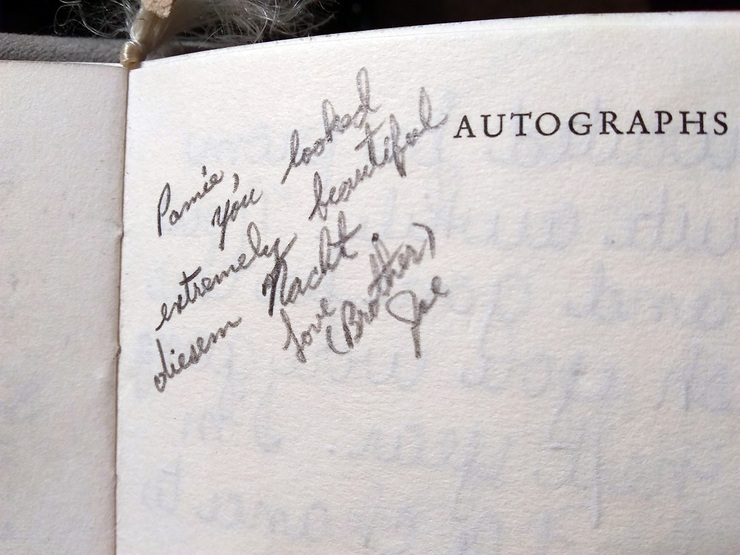 AUTOGRAPHS
Pamie,
you looked
extremely beautiful
diesem Nacht.
Love
(Brother)
Joe